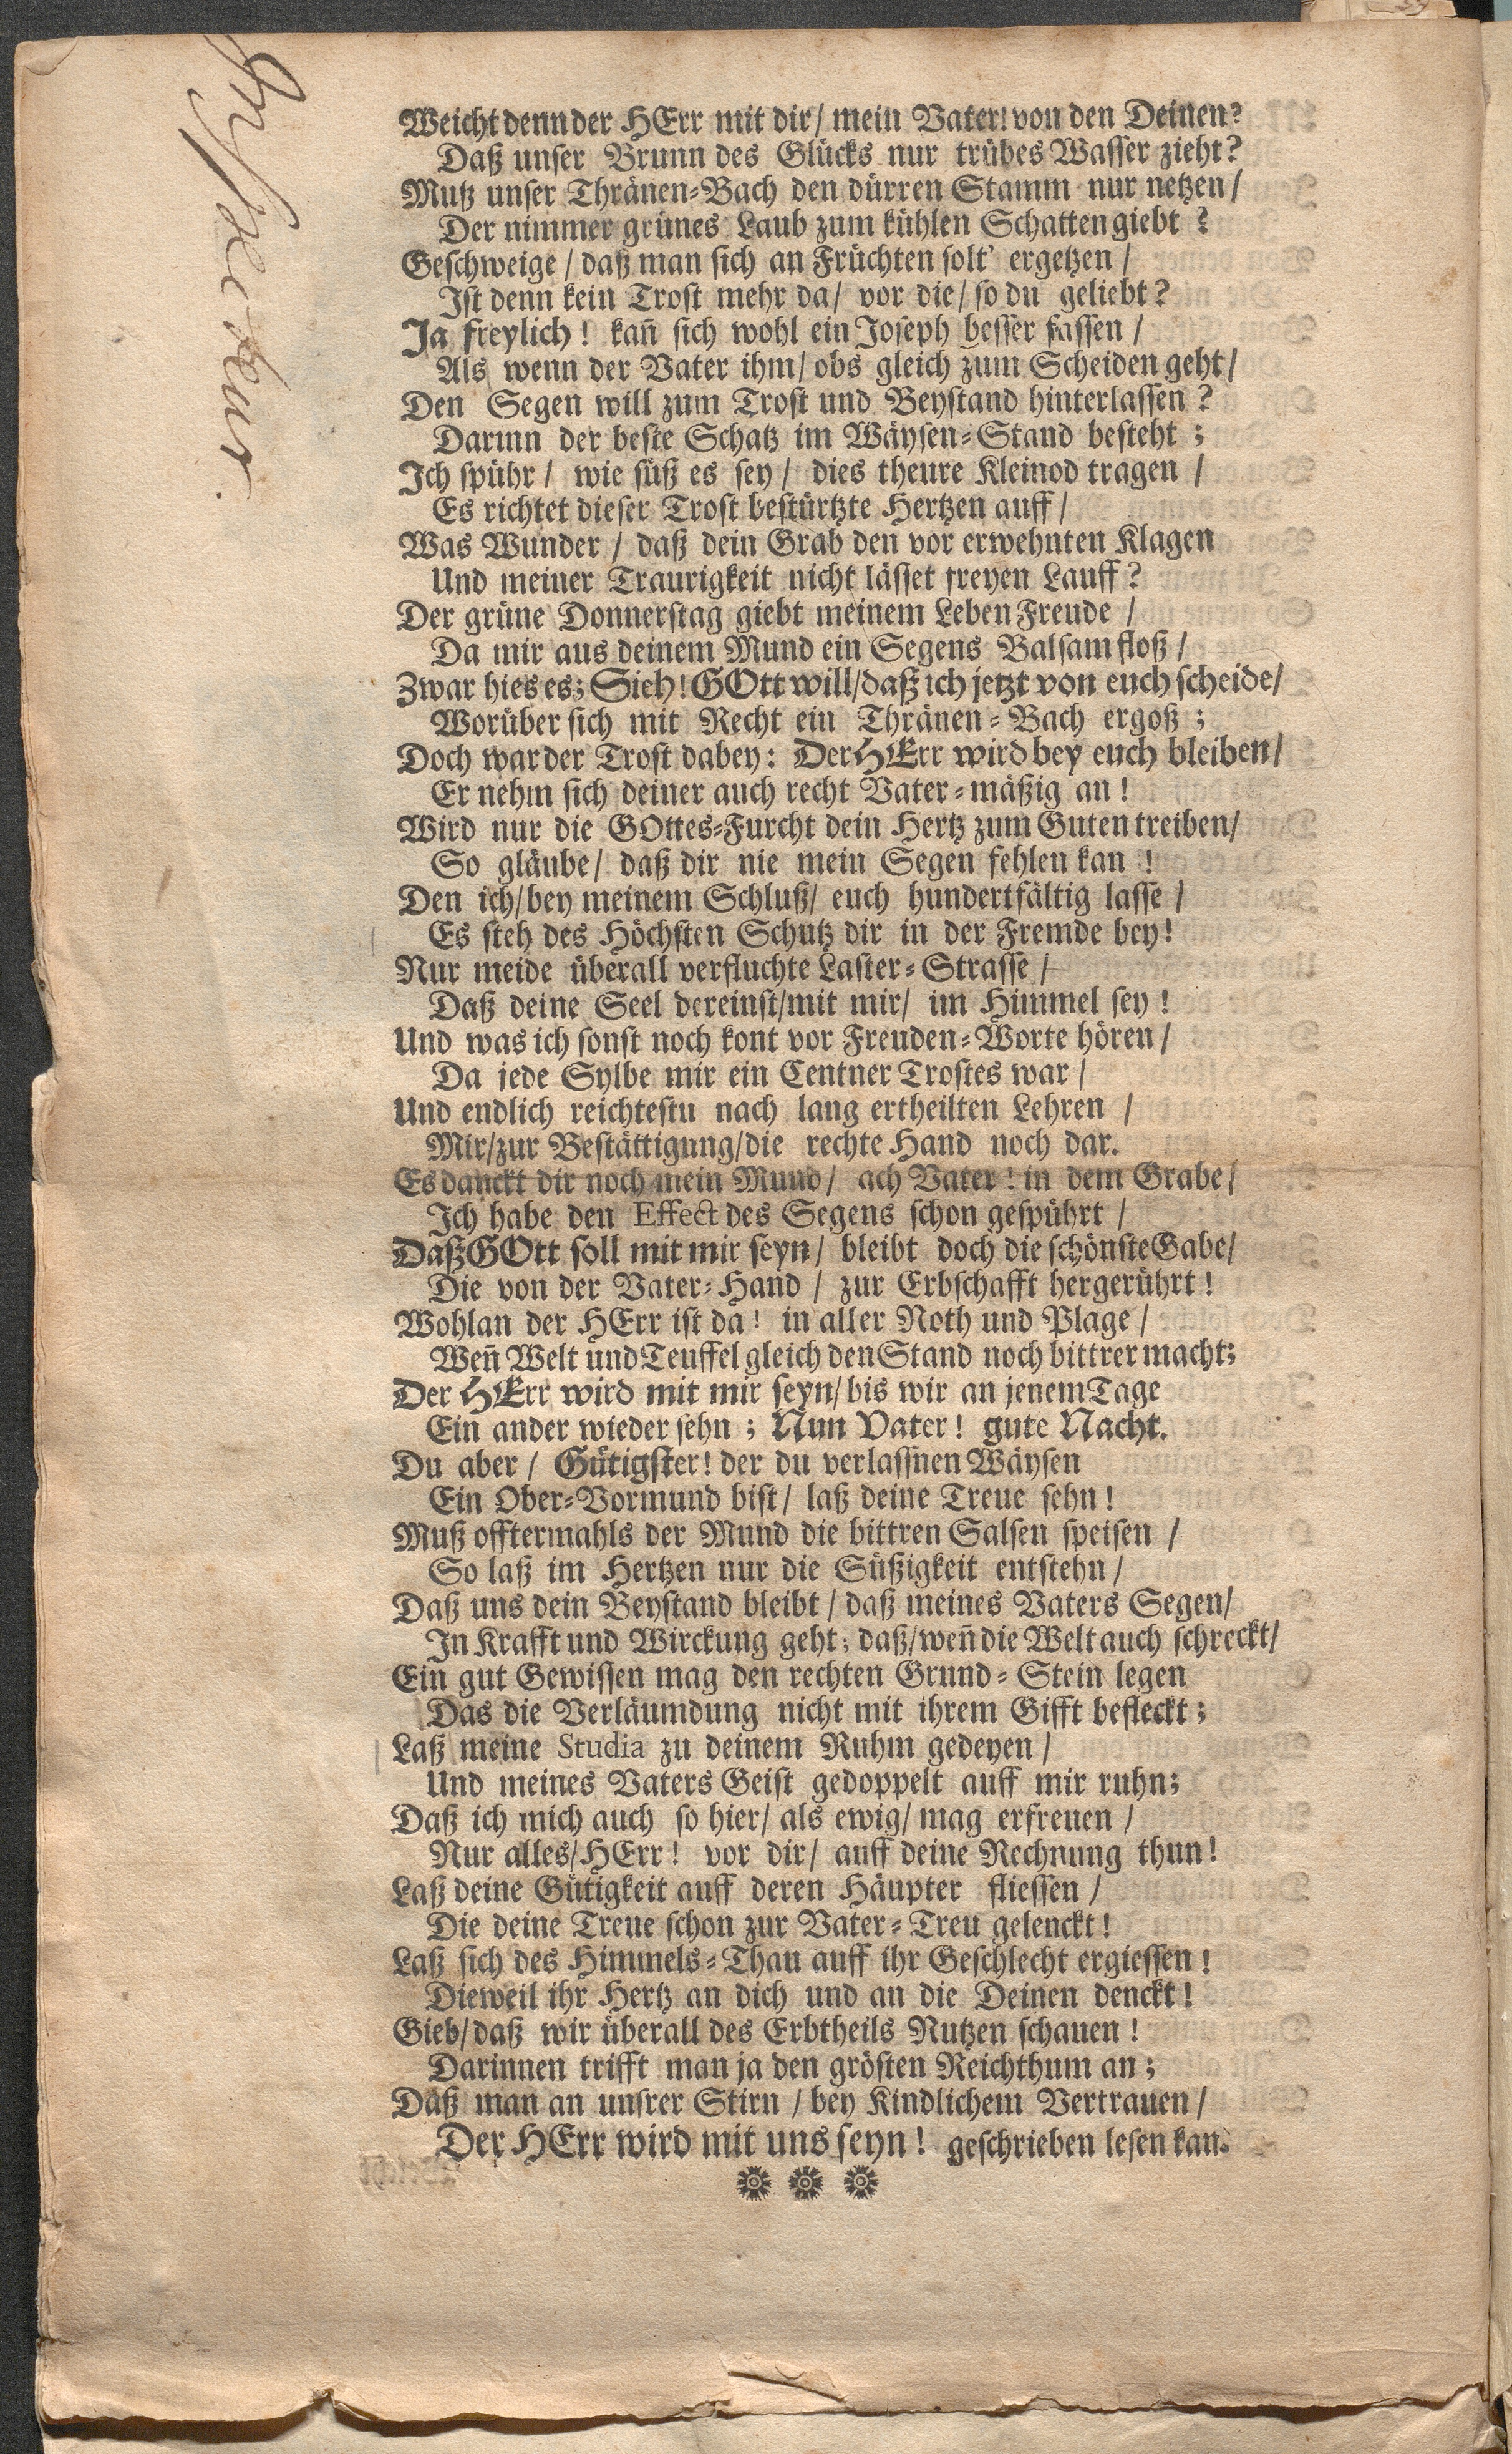 Weicht denn der HErr mit dir/ mein Vater! von den Deinen?
Daß unser Brunn des Glücks nur trübes Wasser zieht?
Mutz unser Thränen-Bach den dürren Stamm nur netzen/
Der nimmer grünes Laub zum kühlen Schatten giebt?
Geschweige/ daß man sich an Früchten solt' ergetzen/
Ist denn kein Trost mehr da/ vor die/ so du geliebt?
Ja freylich! kañ sich wohl ein Joseph besser fassen/
Als wenn der Vater ihm/ obs gleich zum Scheiden geht/
Den Segen will zum Trost und Beystand hinterlassen?
Darinn der beste Schatz im Wäysen-Stand besteht;
Ich spühr/ wie süß es sey/ dies theure Kleinod tragen/
Es richtet dieser Trost bestürtzte Hertzen auff/
Was Wunder/ daß dein Grab den vor erwehnten Klagen
Und meiner Traurigkeit nicht lässet freyen Lauff?
Der grüne Donnerstag giebt meinem Leben Freude/
Da mir aus deinem Mund ein Segens Balsam floß/
Zwar hies es; Sieh! GOtt will/daß ich jetzt von euch scheide/
Worüber sich mit Recht ein Thränen-Bach ergoß;
Doch war der Trost dabey: Der HErr wird bey euch bleiben/
Er nehm sich deiner auch recht Vater-mäßig an!
Wird nur die GOttes-Furcht dein Hertz zum Guten treiben/
So gläube/ daß dir nie mein Segen fehlen kan!
Den ich/bey meinem Schluß/ euch hundertfältig lasse/
Es steh des Höchsten Schutz dir in der Fremde bey!
Nur meide überall verfluchte Laster-Strasse/
Daß deine Seel dereinst/mit mir/ im Himmel sey!
Und was ich sonst noch kont vor Freuden-Worte hören/
Da jede Sylbe mir ein Centner Trostes war/
Und endlich reichtestu nach lang ertheilten Lehren/
Mir/zur Bestättigung/die rechte Hand noch dar.
Es danckt dir noch mein Mund/ ach Vater! in dem Grabe/
Ich habe den Effect des Segens schon gespührt/
Daß GOtt soll mit mir seyn/ bleibt doch die schönste Gabe/
Die von der Vater-Hand/ zur Erbschafft hergerührt!
Wohlan der HErr ist da! in aller Noth und Plage/
Weñ Welt und Teuffel gleich den Stand noch bittrer macht;
Der HErr wird mit mir seyn/bis wir an jenem Tage
Ein ander wieder sehn; Nun Vater! gute Nacht.
Du aber/ Gütigster! der du verlassnen Wäysen
Ein Ober-Vormund bist/ laß deine Treue sehn!
Muß offtermahls der Mund die bittren Salsen speisen/
So laß im Hertzen nur die Süßigkeit entstehn/
Daß uns dein Beystand bleibt/ daß meines Vaters Segen/
In Krafft und Wirckung geht; daß/weñ die Welt auch schreckt/
Ein gut Gewissen mag den rechten Grund-Stein legen
Das die Verläumdung nicht mit ihrem Gifft befleckt;
Laß meine Studia zu deinem Ruhm gedeyen/
Und meines Vaters Geist gedoppelt auff mir ruhn;
Daß ich mich auch so hier/ als ewig/ mag erfreuen/
Nur alles/HErr! vor dir/ auff deine Rechnung thun!
Laß deine Gütigkeit auff deren Häupter fliessen/
Die deine Treue schon zur Vater-Treu gelenckt!
Laß sich des Himmels-Thau auff ihr Geschlecht ergiessen!
Dieweil ihr Hertz an dich und an die Deinen denckt!
Gieb/daß wir überall des Erbtheils Nutzen schauen!
Darinnen trifft man ja den grösten Reichthum an;
Daß man an unsrer Stirn/bey Kindlichem Vertrauen/
Der HErr wird mit uns seyn! geschrieben lesen kan.